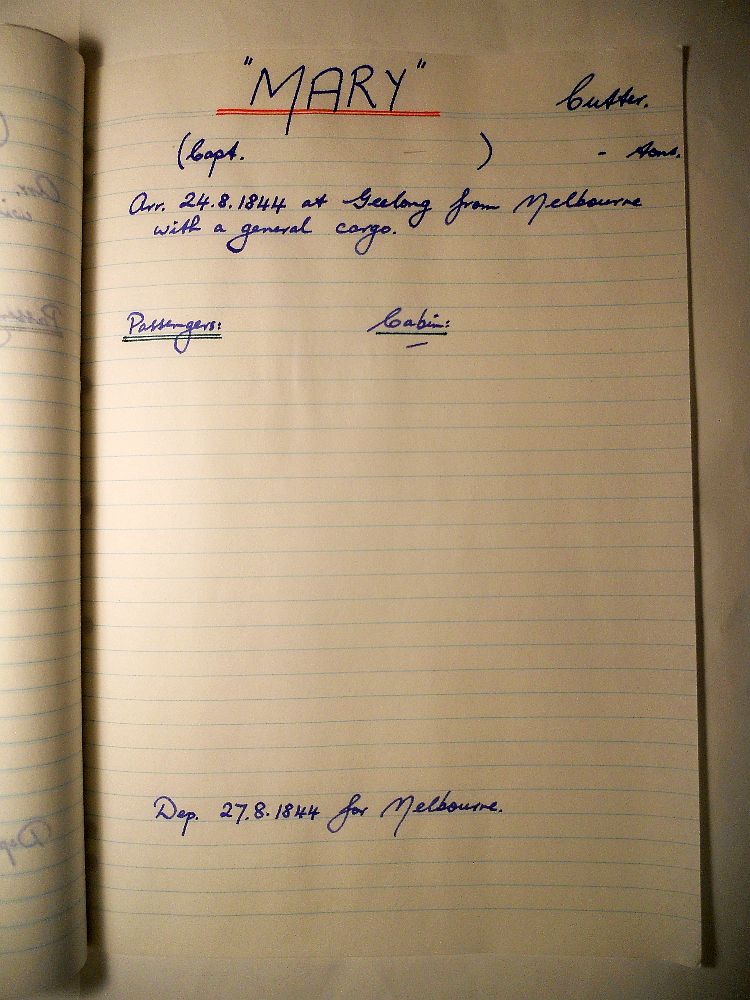 "MARY" Cutter.
(Capt. ) - tons.
Arr. 24.8.1844 at Geelong from Melbourne
with a general cargo.
Passengers: Cabin:
—
Dep. 27.8.1844 for Melbourne.